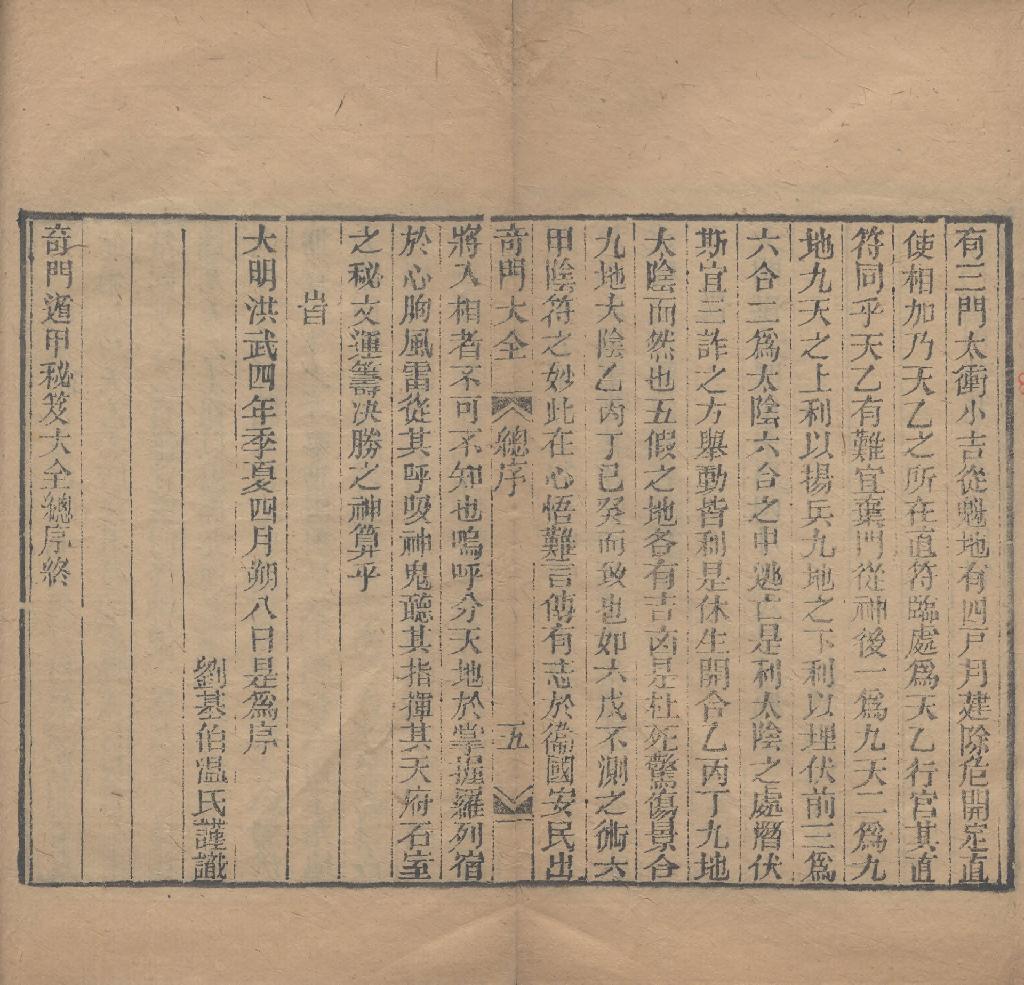 有三門太衝小吉從魁地有四戸月建除危開定直
使相加乃天乙之所在直符臨處爲天乙行宫其直
符同乎天乙有難宜棄門從神後一爲九天二爲九
地九天之上利以揚兵九地之下利以埋伏前三爲
六合二爲太陰六合之中逃亡是利太陰之處潛伏
斯宜三詐之方舉動皆利是休生開合乙丙丁九地
太陰而然也五假之地各有吉凶是杜死驚傷景合
九地大陰乙丙丁己癸而致也如六戊不測之術六
甲陰符之妙此在心悟難言傳有志於衛國安民出
奇門大全 總序 五
將入相者不可不知也嗚呼分天地於掌握羅列宿
於心胸風雷從其呼吸神鬼聽其指揮其天府石室
之秘文運籌决勝之神算乎
旹
大明洪武四年季夏四月朔八日是爲序
劉基伯温氏謹識
奇門遁甲秘笈大全總序終